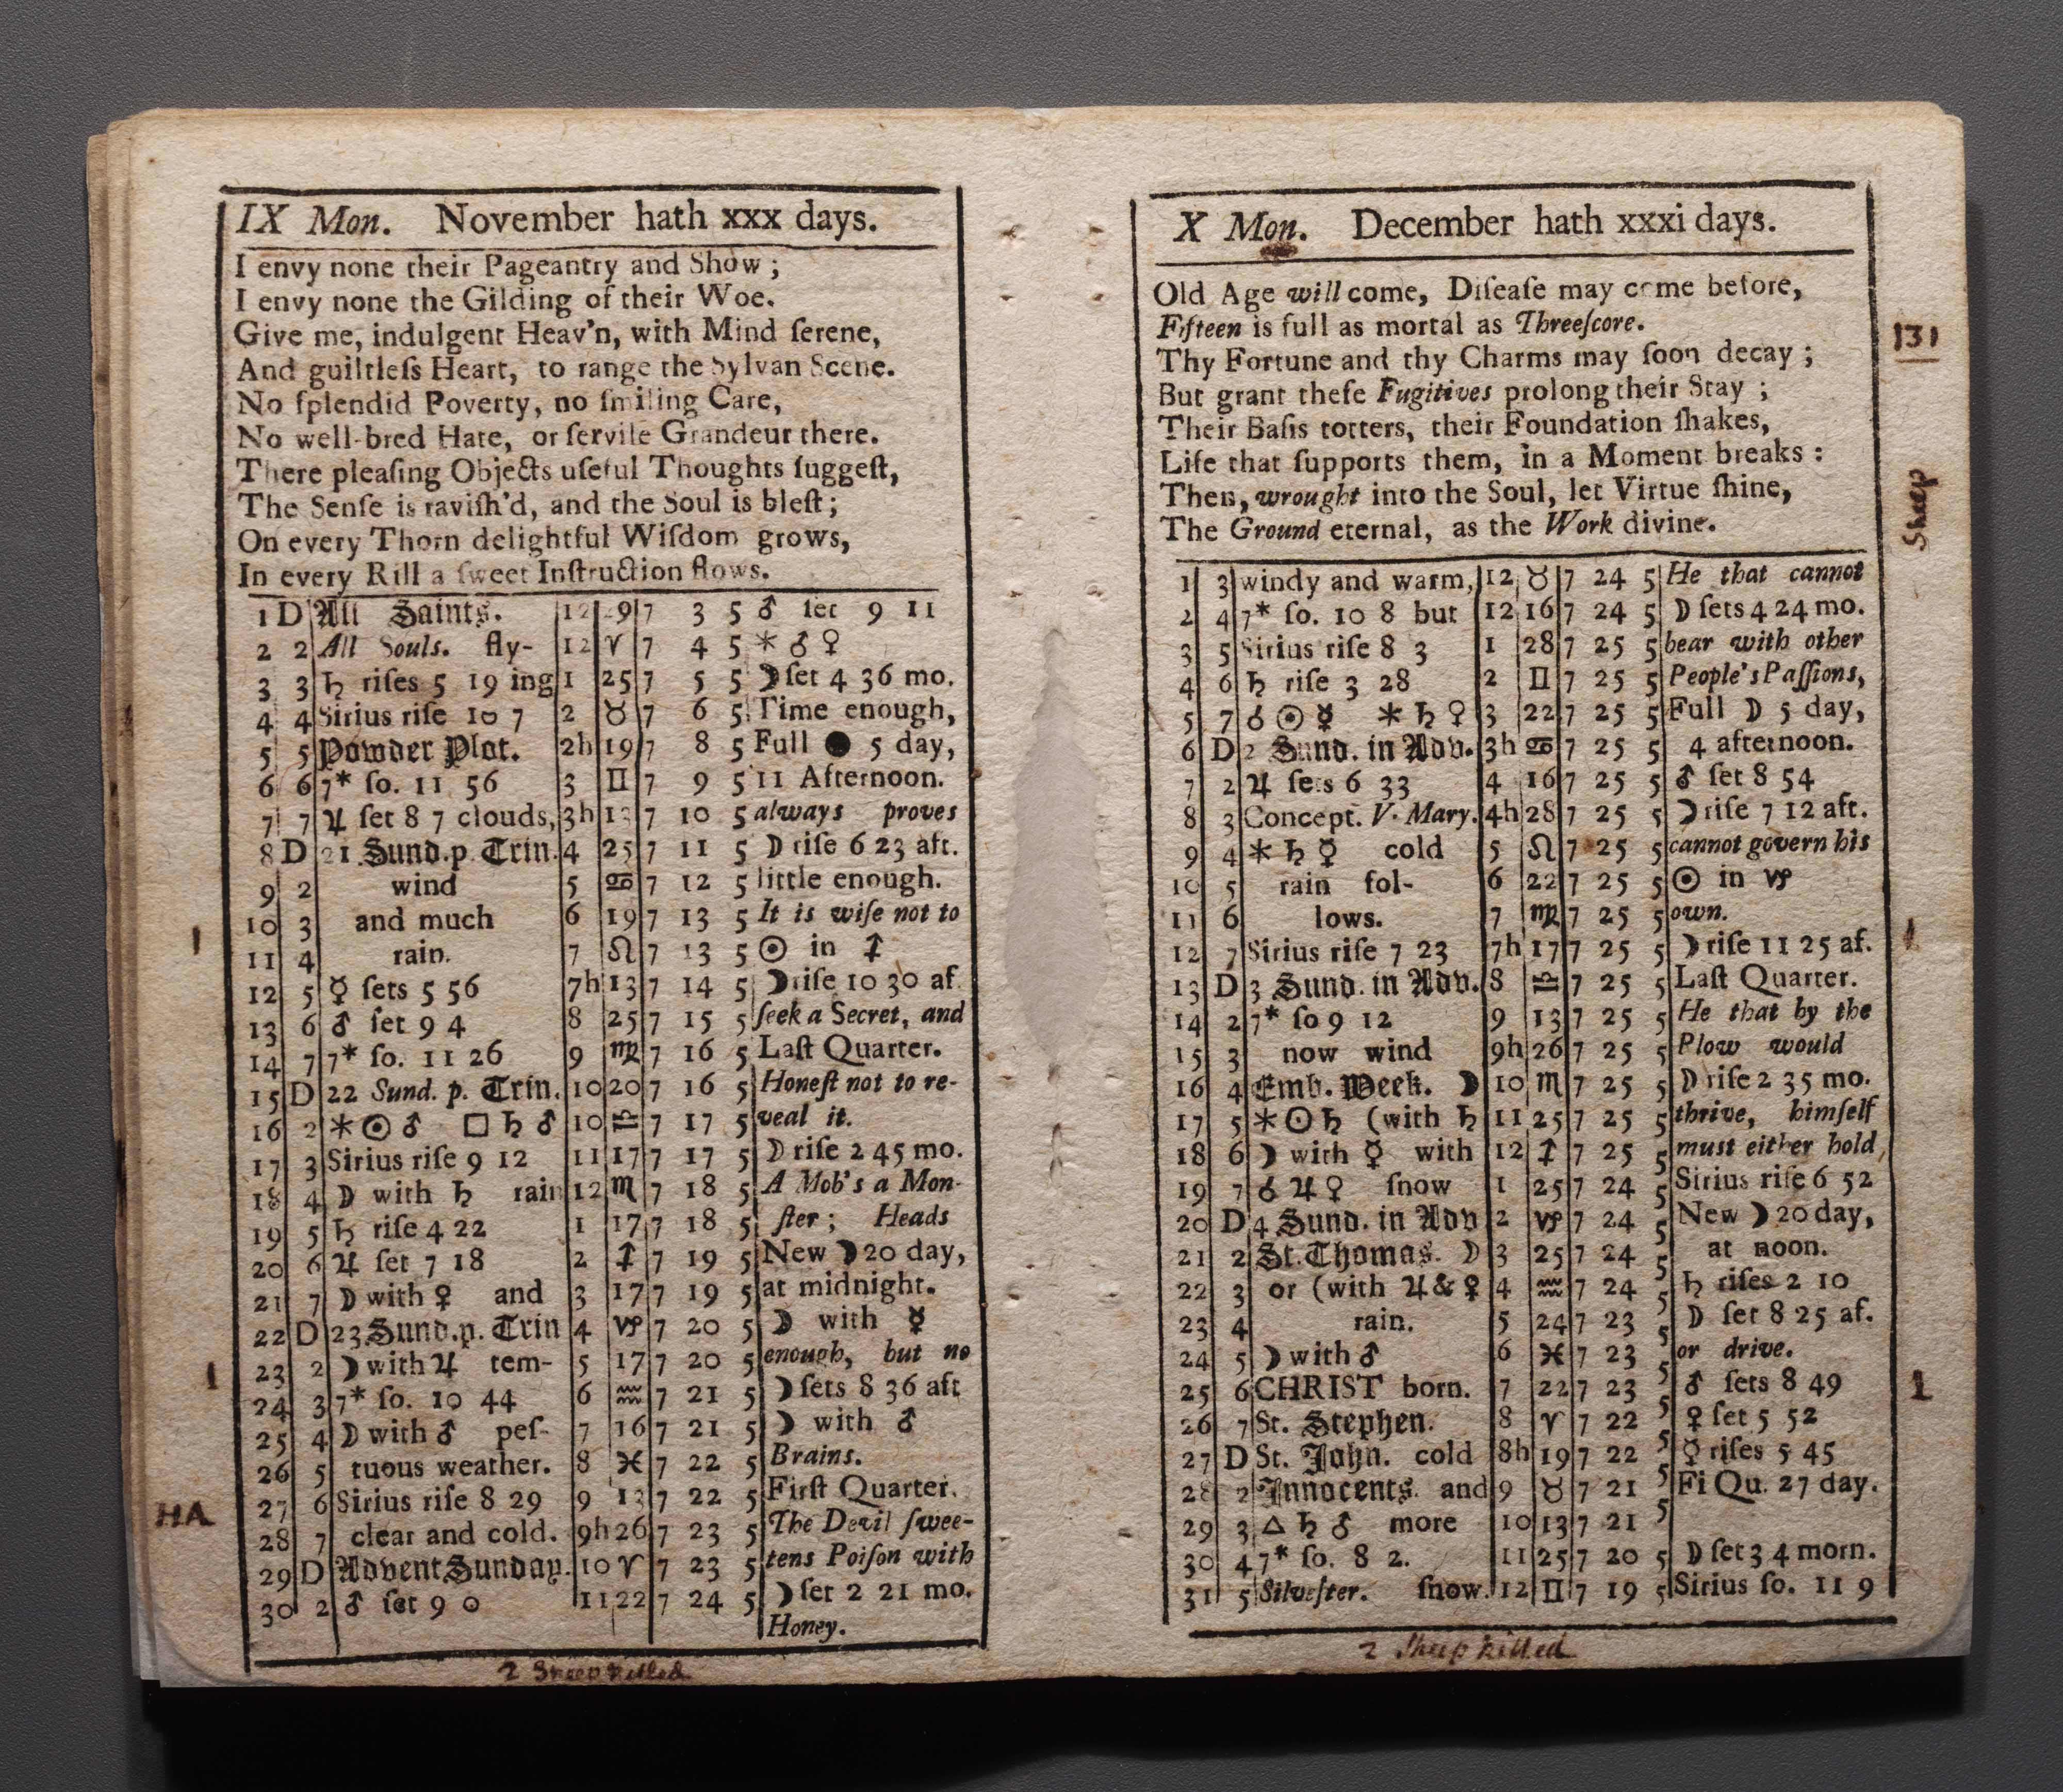 IX Mon. November hath xxx days.
I envy none their Pageantry and Show ;
I envy none the Gilding of their Woe.
Give me, indulgent Heav'n, with Mind ſerene,
And guiltleſs Heart, to range the Sylvan Scene.
No ſplendid Poverty, no ſmiling Care,
No well-bred Hate, or ſervile Grandeur there.
There pleaſing Objects uſeful Thoughts ſuggeſt,
The Senſe is raviſh'd, and the Soul is bleſt;
On every Thorn delightful Wiſdom grows,
In every Rill a ſweet Inſtruction flows.
1 D All Saints. 12 29 7 3 5 ♂ ſet 9 11
2 2 All Souls. fly- 12 ♈ 7 4 5 ⚹ ♂ ♀
3 3 ♄ riſes 5 19 ing 1 25 7 5 5 ☽ ſet 4 36 mo.
4 4 Sirius riſe 10 7 2 ♉ 7 6 5 Time enough,
5 5 Powder Plot. 2h 19 7 8 5 Full ● 5 day,
6 6 7* ſo. 11 56 3 ♊ 7 9 5 11 Afternoon.
7 7 ♃ ſet 8 7 clouds, 3h 13 7 10 5 always proves
8 D 21 Sund. p. Trin. 4 25 7 11 5 ☽ riſe 6 23 aft.
9 2 wind 5 ♋ 7 12 5 little enough.
10 3 and much 6 19 7 13 5 It is wiſe not to
11 4 rain. 7 ♌ 7 13 5 ☉ in ♐
12 5 ☿ ſets 5 56 7h 13 7 14 5 ☽ riſe 10 30 af
13 6 ♂ ſet 9 4 8 25 7 15 5 ſeek a Secret, and
14 7 7* ſo. 11 26 9 ♍ 7 16 5 Laſt Quarter.
15 D 22 Sund. p. Trin. 10 20 7 16 5 Honeſt not to re-
16 2 ⚹ ☉ ♂ □ ♄ ♂ 10 ♎ 7 17 5 veal it.
17 3 Sirius riſe 9 12 11 17 7 17 5 ☽ riſe 2 45 mo.
18 4 ☽ with ♄ rain 12 ♏ 7 18 5 A Mob's a Mon-
19 5 ♄ riſe 4 22 1 17 7 18 5 ſter ; Heads
20 6 ♃ ſet 7 18 2 ♐ 7 19 5 New ☽ 20 day,
21 7 ☽ with ♀ and 3 17 7 19 5 at midnight.
22 D 23 Sund. p. Trin 4 ♑ 7 20 5 ☽ with ☿
23 2 ☽ with ♃ tem- 5 17 7 20 5 enough, but no
24 3 7* ſo. 10 44 6 ♒ 7 21 5 ☽ ſets 8 36 aft
25 4 ☽ with ♂ peſ- 7 16 7 21 5 ☽ with ♂
26 5 tuous weather. 8 ♓ 7 22 5 Brains.
27 6 Sirius riſe 8 29 9 13 7 22 5 Firſt Quarter.
HA
28 7 clear and cold. 9h 26 7 23 5 The Devil ſwee-
29 D Advent Sunday. 10 ♈ 7 23 5 tens Poiſon with
30 2 ♂ ſet 9 0 11 22 7 24 5 ☽ ſet 2 21 mo.
Honey.
2 Sheep killed
X Mon. December hath xxxi days.
Old Age will come, Diſeaſe may come before,
Fifteen is full as mortal as Threeſcore.
Thy Fortune and thy Charms may ſoon decay ;
But grant theſe Fugitives prolong their Stay ;
Their Baſis totters, their Foundation ſhakes,
Life that ſupports them, in a Moment breaks :
Then, wrought into the Soul, let Virtue ſhine,
The Ground eternal, as the Work divine.
1 3 windy and warm, 12 ♉ 7 24 5 He that cannot
2 4 7* ſo. 10 8 but 12 16 7 24 5 ☽ ſets 4 24 mo.
3 5 Sirius riſe 8 3 1 28 7 25 5 bear with other
4 6 ♄ riſe 3 28 2 ♊ 7 25 5 People's Paſſions,
5 7 ☌ ☉ ☿ ⚹ ♄ ♀ 3 22 7 25 5 Full ☽ 5 day,
6 D 2 Sund. in Adv. 3h ♋ 7 25 5 4 afternoon.
7 2 ♃ ſets 6 33 4 16 7 25 5 ♂ ſet 8 54
8 3 Concept. V. Mary. 4h 28 7 25 5 ☽ riſe 7 12 aft.
9 4 ⚹ ♄ ☿ cold 5 ♌ 7 25 5 cannot govern his
10 5 rain fol- 6 22 7 25 5 ☉ in ♑
11 6 lows. 7 ♍ 7 25 5 own.
12 7 Sirius riſe 7 23 7h 17 7 25 5 ☽ riſe 11 25 af.
13 D 3 Sund. in Adv. 8 ♎ 7 25 5 Laſt Quarter.
14 2 7* ſo 9 12 9 13 7 25 5 He that by the
15 3 now wind 9h 26 7 25 5 Plow would
16 4 Emb. Week. ☽ 10 ♏ 7 25 5 ☽ riſe 2 35 mo.
17 5 ⚹ ☉ ♄ (with ♄ 11 25 7 25 5 thrive, himſelf
18 6 ☽ with ☿ with 12 ♐ 7 25 5 must either hold
19 7 ☌ ♃ ♀ ſnow 1 25 7 24 5 Sirius riſe 6 52
20 D 4 Sund. in Adv 2 ♑ 7 24 5 New ☽ 20 day,
21 2 St. Thomas. ☽ 3 25 7 24 5 at noon.
22 3 or (with ♃ & ♀ 4 ♒ 7 24 5 ♄ riſes 2 10
23 4 rain. 5 24 7 23 5 ☽ ſet 8 25 af.
24 5 ☽ with ♂ 6 ♓ 7 23 5 or drive.
25 6 CHRIST born. 7 22 7 23 5 ♂ ſets 8 49
26 7 St. Stephen. 8 ♈ 7 22 5 ♀ ſet 5 52
27 D St. John. cold 8h 19 7 22 5 ☿ riſes 5 45
28 2 Innocents. and 9 ♉ 7 21 5 Fi Qu. 27 day.
29 3 △ ♄ ♂ more 10 13 7 21 5
30 4 7* ſo. 8 2. 11 25 7 20 5 ☽ ſet 3 4 morn.
31 5 Silveſter. ſnow. 12 ♊ 7 19 5 Sirius ſo. 11 9
2 Sheep killed
131
Sheep
1
1
1
1